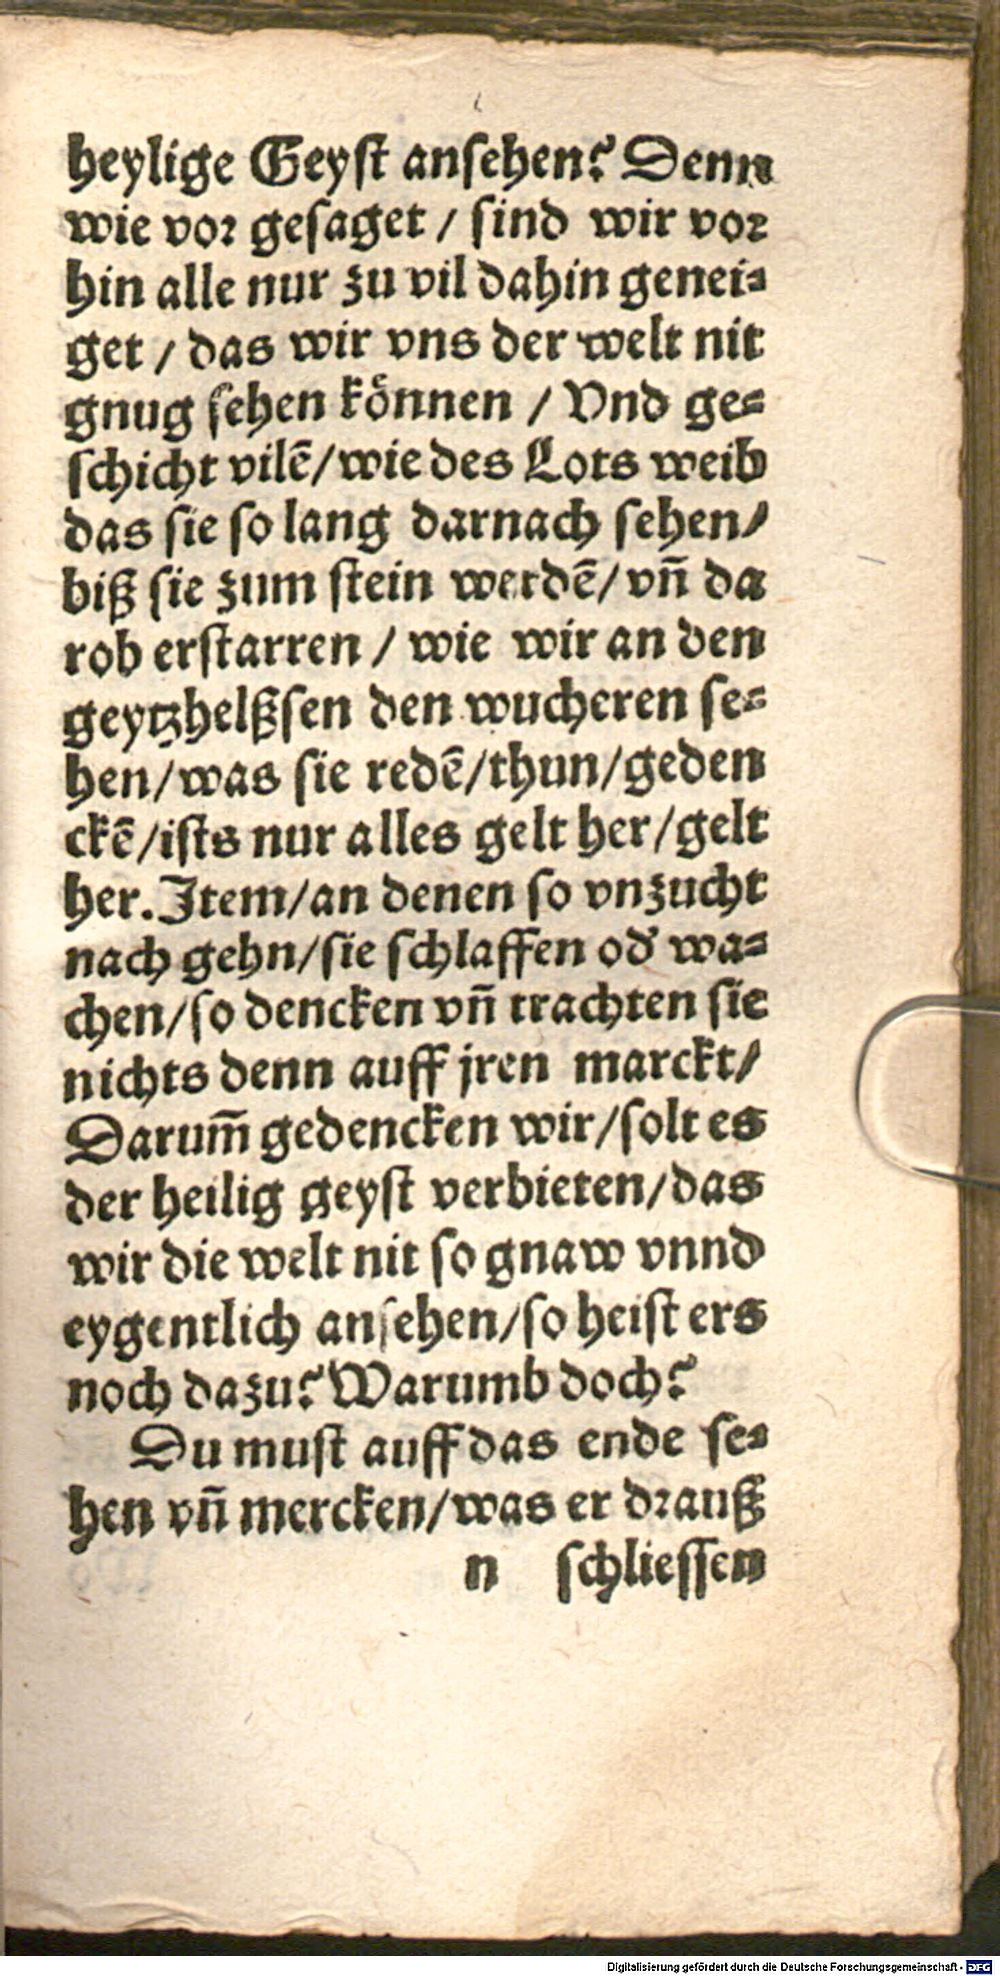 heylige Geyst ansehen? Denn
wie vor gesaget / sind wir vor
hin alle nur zu vil dahin genei-
get / das wir vns der welt nit
gnug sehen koͤnnen / Vnd ge-
schicht vilē/wie des Lots weib
das sie so lang darnach sehen/
biß sie zum stein werdē/vn̄ da
rob erstarren / wie wir an den
geytzhelßsen den wucheren se-
hen/was sie redē/thun/geden
ckē/ists nur alles gelt her/gelt
her. Item/an denen so vnzucht
nach gehn/sie schlaffen od̛ wa-
chen/so dencken vn̄ trachten sie
nichts denn auff jren marckt/
Darum̄ gedencken wir/solt es
der heilig geyst verbieten/das
wir die welt nit so gnaw vnnd
eygentlich ansehen/so heist ers
noch dazu? Warumb doch?
Du must auff das ende se-
hen vn̄ mercken/was er drauß
n schliessen
Digitalisierung gefördert durch die Deutsche Forschungsgemeinschaft - DFG